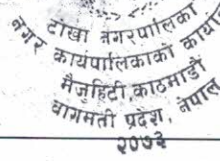 टोखा नगरपालिका
नगर कार्यपालिकाको कार्या
मैजुहिटी, काठमाडौं
बागमती प्रदेश, नेपाल
२०७३